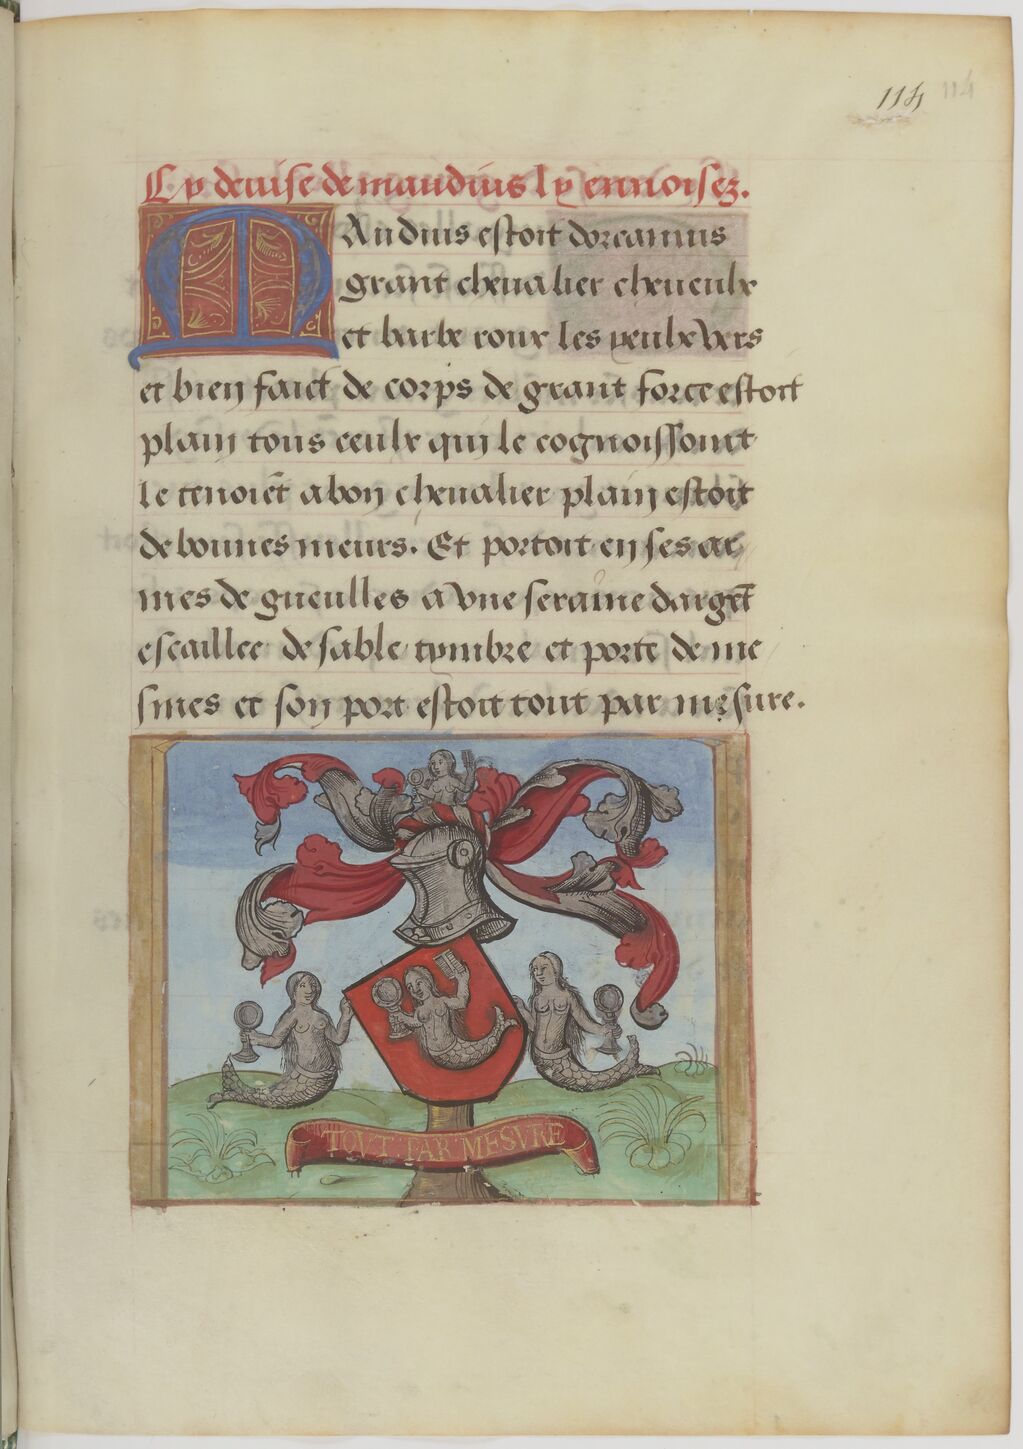 114 114
Cy deuise de maudius ly enuoisez.
MAudius estoit dorcanuis
grant cheualier cheueulx
et barbe roux les yeulx vers
et bien faict de corps de grant force estoit
plain tous ceulx qui le cognoissoint
le tenoiēt a bon cheualier plain estoit
de bonnes meurs. Et portoit en ses ar
mes de gueulles a vne seraine dargēt
escaillee de sable tymbre et porte de me
smes et son port estoit tout par mesure.
TOVT PAR MESVRE